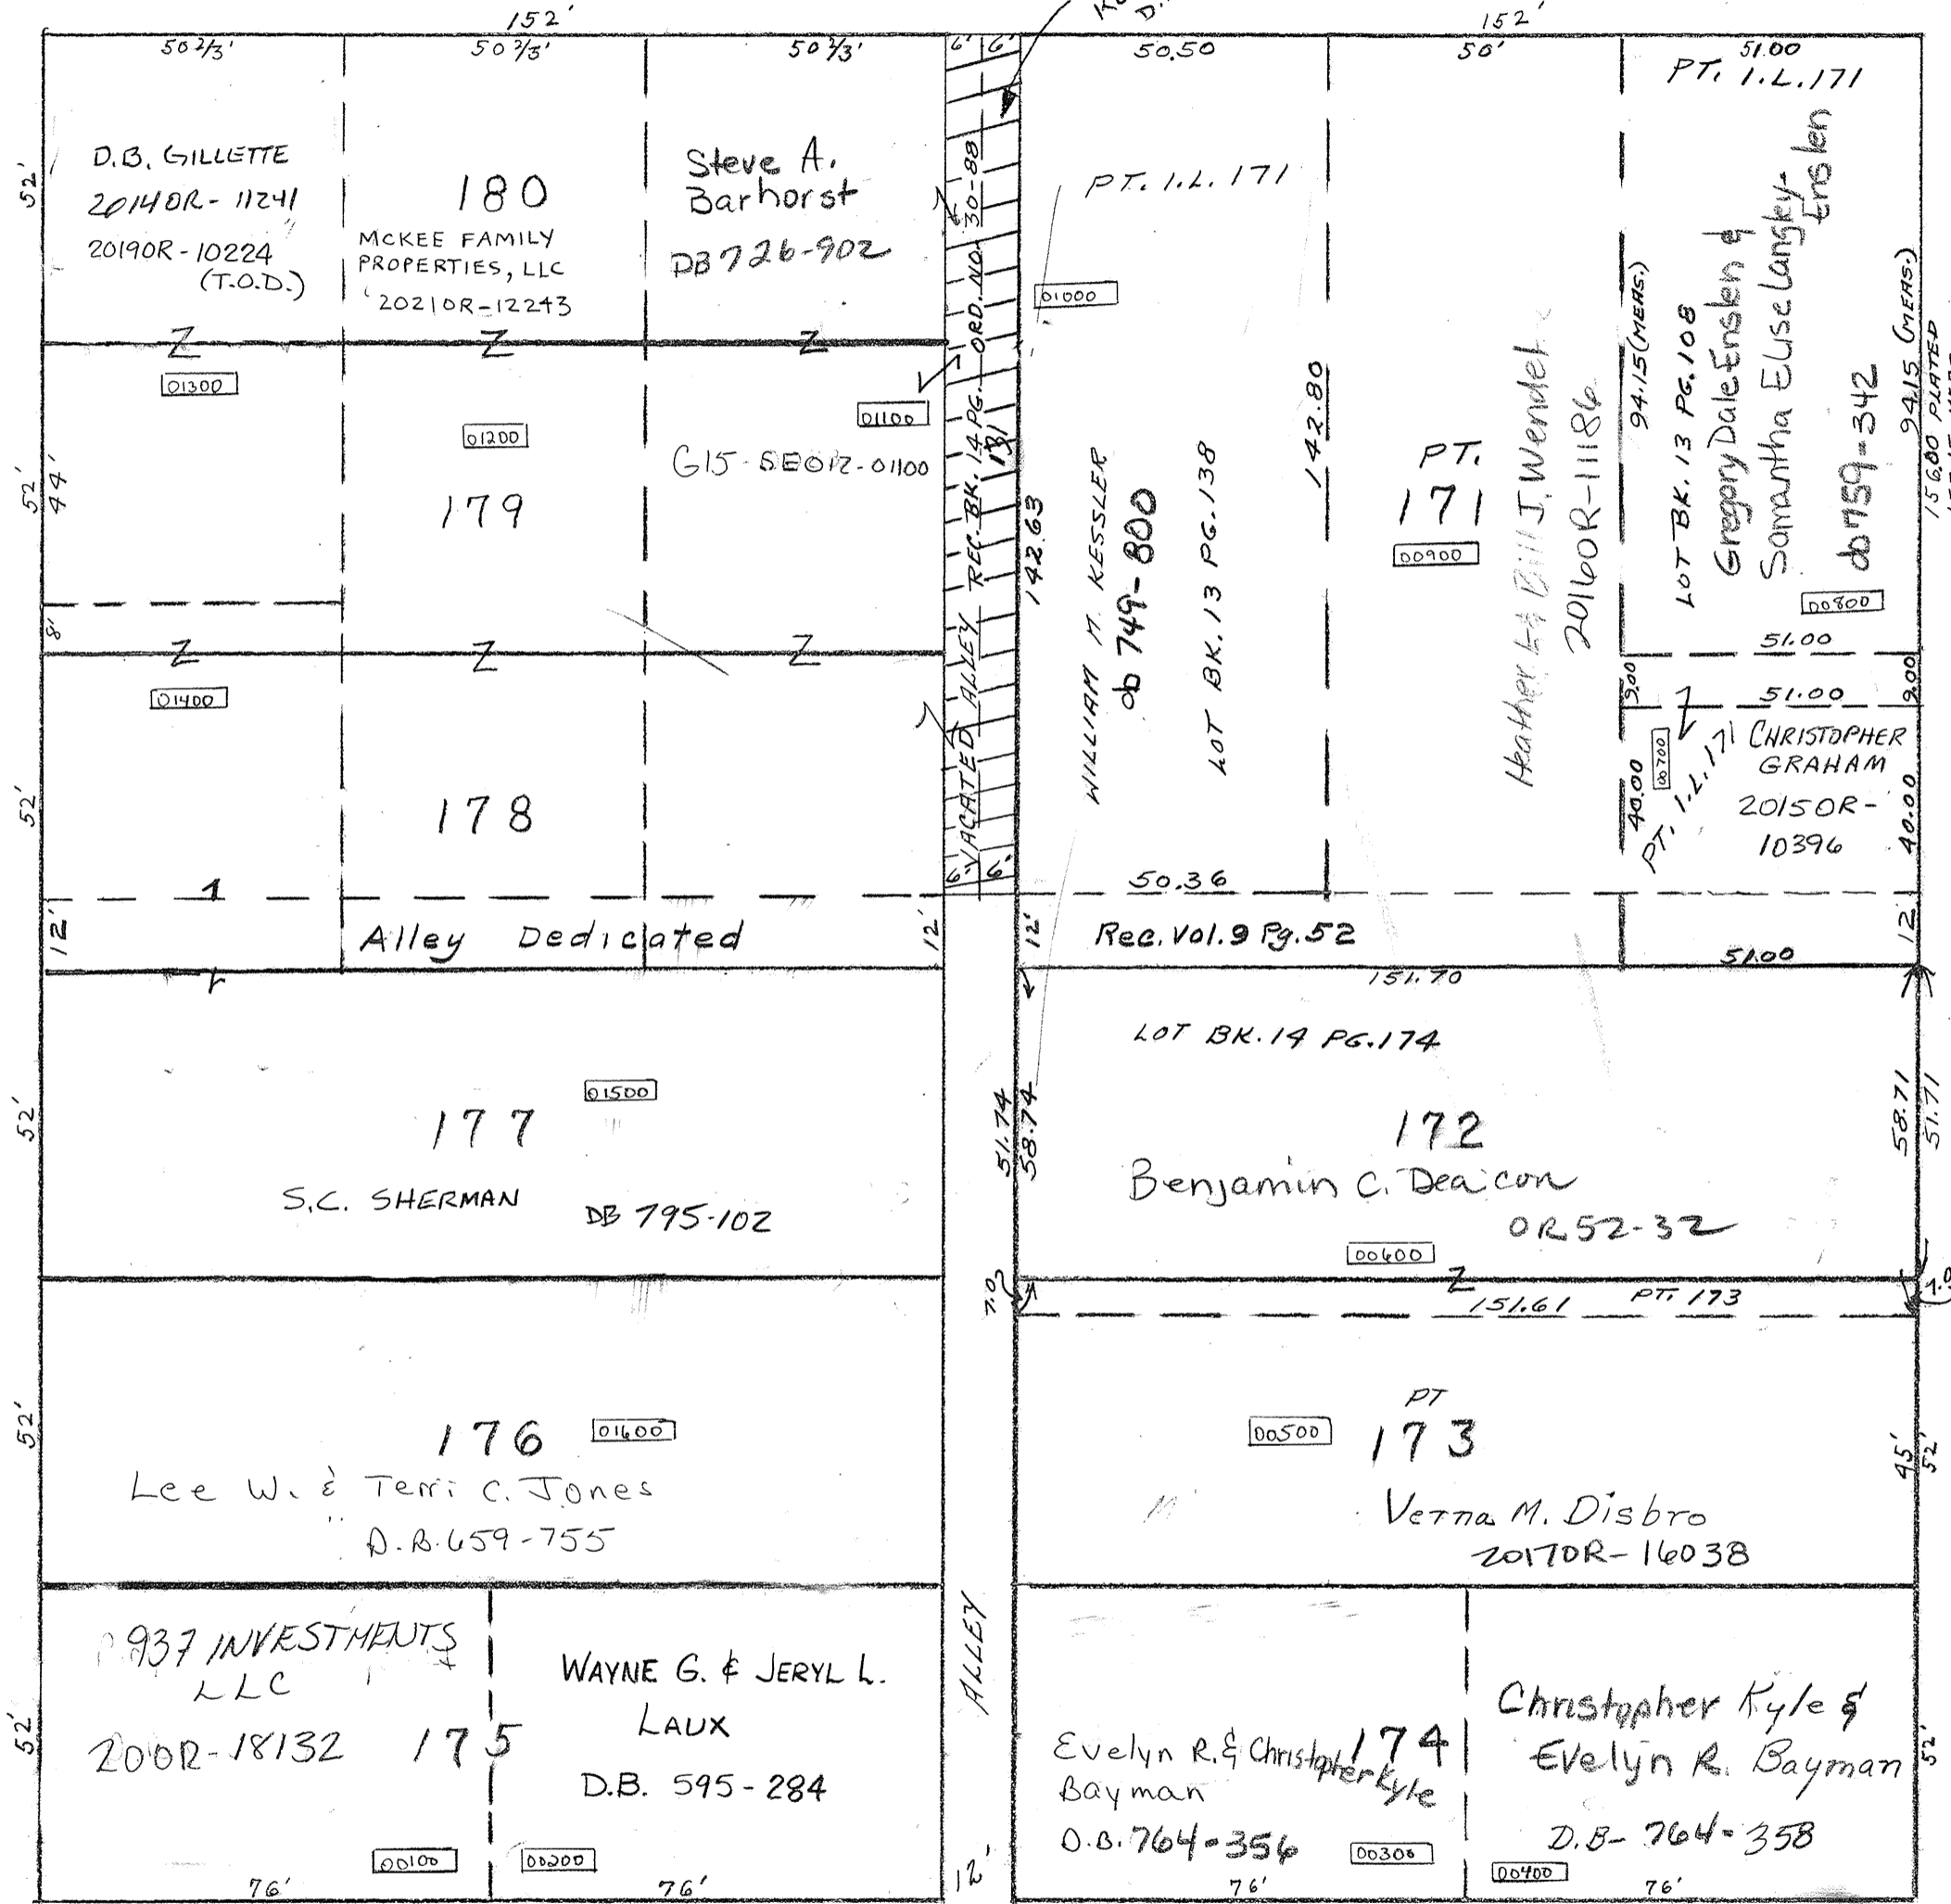 152'
50 2/3'
50 2/3'
50 2/3'
6' 6'
152'
50.50
50'
51.00
PT. I.L. 171
52'
D.B. GILLETTE
2014OR- 11241
2019OR-10224
(T.O.D.)
180
MCKEE FAMILY
PROPERTIES, LLC
2021OR-12243
Steve A.
Barhorst
DB 726-902
Z
Z
Z
01300
01200
01100
G15-SE012-01100
52'
44'
179
8'
Z
Z
Z
01400
52'
178
VACATED ALLEY REC. BK. 14 PG. 131 ORD. NO. 30-88
6' 6'
PT. I.L. 171
01000
142.63
WILLIAM M. KESSLER
db 749-800
LOT BK. 13 PG. 138
142.80
50.36
PT.
171
00900
Bill J. Wendel
2016OR-11186
94.15 (MEAS.)
LOT BK. 13 PG. 108
Gregory Dale Enslen &
Samantha Elise Langley-
Enslen
db 759-342
00800
94.15 (MEAS.)
156.00 PLATED
51.00
9.00
Z
51.00
9.00
40.00
00700
PT. I.L. 171
CHRISTOPHER
GRAHAM
2015OR-
10396
40.00
12'
Alley Dedicated
12'
12'
Rec. Vol. 9 Pg. 52
51.00
12'
151.70
LOT BK. 14 PG. 174
52'
01500
177
S.C. SHERMAN
DB 795-102
51.74
58.74
172
Benjamin C. Deacon
OR 52-32
00600
58.71
51.71
7.0
Z
151.61
PT. 173
52'
176
01600
Lee W. & Terri C. Jones
D.B. 659-755
PT
00500
173
Verna M. Disbro
2017OR-16038
45'
52'
52'
937 INVESTMENTS
LLC
200R-18132
175
WAYNE G. & JERYL L.
LAUX
D.B. 595-284
00100
00200
76'
76'
ALLEY
12'
174
Evelyn R. & Christopher Kyle
Bayman
D.B. 764-356
00300
76'
Christopher Kyle &
Evelyn R. Bayman
D.B- 764-358
00400
76'
52'